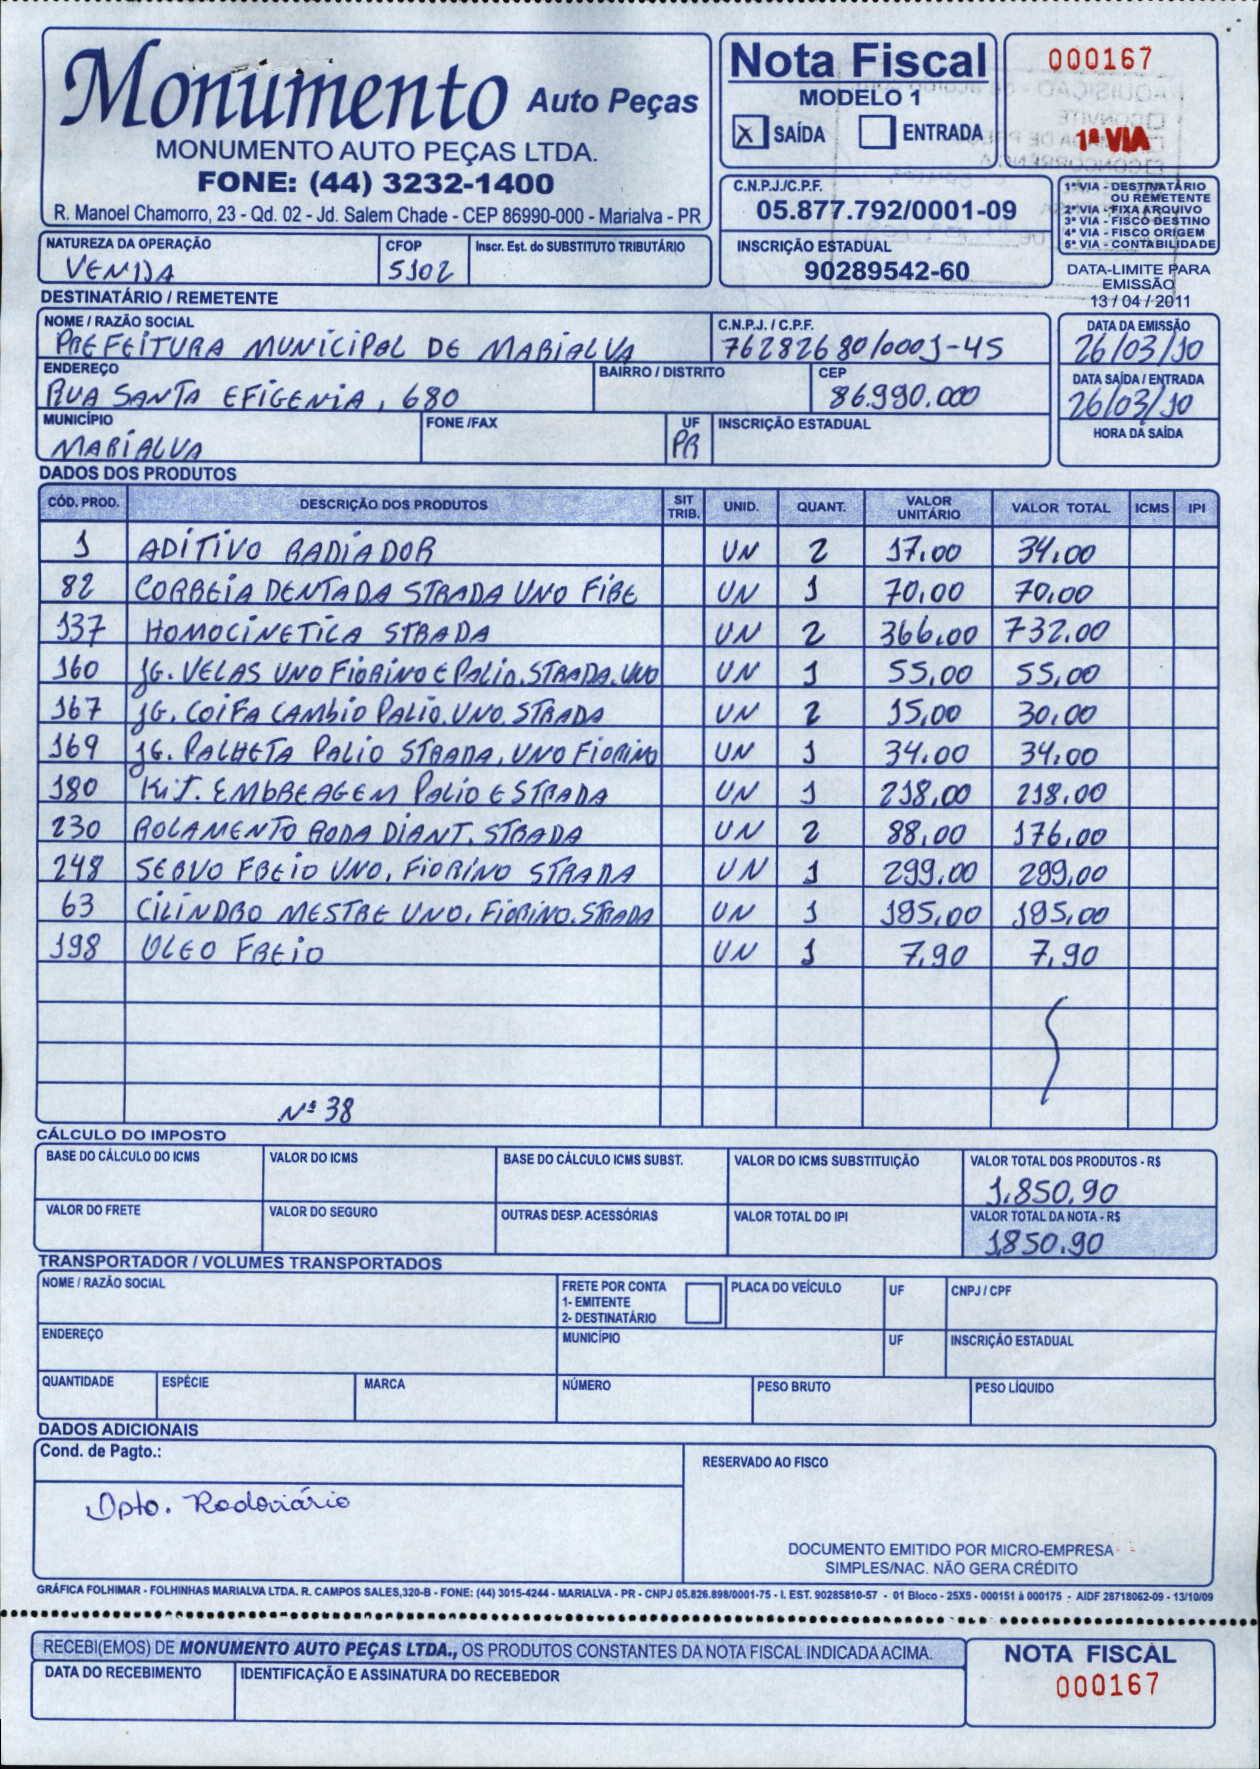 Monumento Auto Peças
MONUMENTO AUTO PEÇAS LTDA.
FONE: (44) 3232-1400
R. Manoel Chamorro, 23 - Qd. 02 - Jd. Salem Chade - CEP 86990-000 - Marialva - PR
Nota Fiscal
MODELO 1
X SAÍDA ENTRADA
000167
1ª VIA
C.N.P.J./C.P.F.
05.877.792/0001-09
INSCRIÇÃO ESTADUAL
90289542-60
1ª VIA - DESTINATÁRIO
OU REMETENTE
2ª VIA - FIXA ARQUIVO
3ª VIA - FISCO DESTINO
4ª VIA - FISCO ORIGEM
5ª VIA - CONTABILIDADE
DATA-LIMITE PARA
EMISSÃO
13 / 04 / 2011
NATUREZA DA OPERAÇÃO CFOP Inscr. Est. do SUBSTITUTO TRIBUTÁRIO
VENDA 5102
DESTINATÁRIO / REMETENTE
NOME / RAZÃO SOCIAL C.N.P.J. / C.P.F. DATA DA EMISSÃO
PREFEITURA MUNICIPAL DE MARIALVA 76282680/0001-45 26/03/10
ENDEREÇO BAIRRO / DISTRITO CEP DATA SAÍDA / ENTRADA
RUA SANTA EFIGENIA, 680 86.990.000 26/03/10
MUNICÍPIO FONE /FAX UF INSCRIÇÃO ESTADUAL HORA DA SAÍDA
MARIALVA PR
DADOS DOS PRODUTOS
CÓD. PROD. DESCRIÇÃO DOS PRODUTOS SIT TRIB. UNID. QUANT. VALOR UNITÁRIO VALOR TOTAL ICMS IPI
1 ADITIVO RADIADOR UN 2 17,00 34,00
82 CORREIA DENTADA STRADA UNO FIRE UN 1 70,00 70,00
137 HOMOCINETICA STRADA UN 2 366,00 732,00
160 JG. VELAS UNO FIORINO E PALIO, STRADA, UNO UN 1 55,00 55,00
167 JG. COIFA CAMBIO PALIO, UNO, STRADA UN 2 15,00 30,00
169 JG. PALHETA PALIO STRADA, UNO FIORINO UN 1 34,00 34,00
180 KIT. EMBREAGEM PALIO E STRADA UN 1 218,00 218,00
230 ROLAMENTO RODA DIANT. STRADA UN 2 88,00 176,00
248 SERVO FREIO UNO, FIORINO STRADA UN 1 299,00 299,00
63 CILINDRO MESTRE UNO, FIORINO, STRADA UN 1 195,00 195,00
198 OLEO FREIO UN 1 7,90 7,90
Nº 38
CÁLCULO DO IMPOSTO
BASE DO CÁLCULO DO ICMS VALOR DO ICMS BASE DO CÁLCULO ICMS SUBST. VALOR DO ICMS SUBSTITUIÇÃO VALOR TOTAL DOS PRODUTOS - R$
1.850,90
VALOR DO FRETE VALOR DO SEGURO OUTRAS DESP. ACESSÓRIAS VALOR TOTAL DO IPI VALOR TOTAL DA NOTA - R$
1850,90
TRANSPORTADOR / VOLUMES TRANSPORTADOS
NOME / RAZÃO SOCIAL FRETE POR CONTA PLACA DO VEÍCULO UF CNPJ / CPF
1- EMITENTE
2- DESTINATÁRIO
ENDEREÇO MUNICÍPIO UF INSCRIÇÃO ESTADUAL
QUANTIDADE ESPÉCIE MARCA NÚMERO PESO BRUTO PESO LÍQUIDO
DADOS ADICIONAIS
Cond. de Pagto.:
Dpto. Rodoviário
RESERVADO AO FISCO
DOCUMENTO EMITIDO POR MICRO-EMPRESA
SIMPLES/NAC. NÃO GERA CRÉDITO
GRÁFICA FOLHIMAR - FOLHINHAS MARIALVA LTDA. R. CAMPOS SALES,320-B - FONE: (44) 3015-4244 - MARIALVA - PR - CNPJ 05.826.898/0001-75 - I. EST. 90285810-57 - 01 Bloco - 25X5 - 000151 à 000175 - AIDF 28718062-09 - 13/10/09
RECEBI(EMOS) DE MONUMENTO AUTO PEÇAS LTDA., OS PRODUTOS CONSTANTES DA NOTA FISCAL INDICADA ACIMA.
DATA DO RECEBIMENTO IDENTIFICAÇÃO E ASSINATURA DO RECEBEDOR
NOTA FISCAL
000167